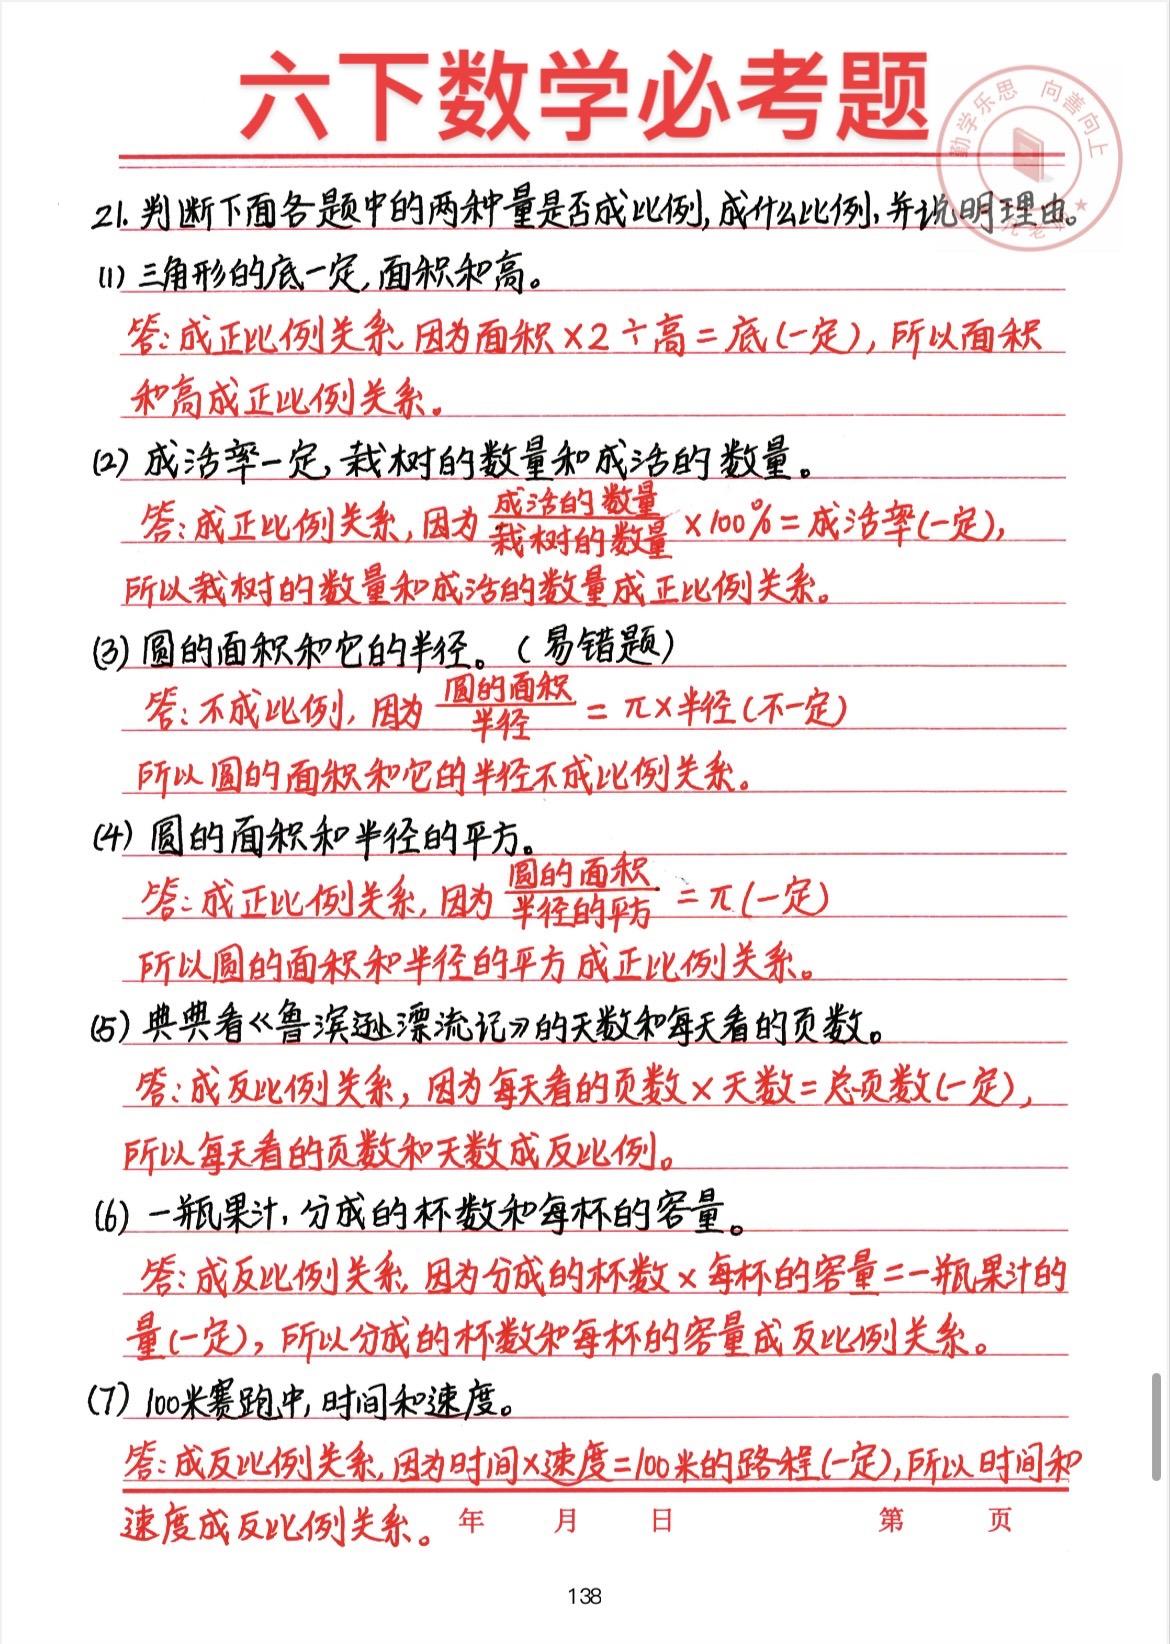 六下数学必考题
勤学乐思 向善向上
21. 判断下面各题中的两种量是否成比例,成什么比例,并说明理由。
(1) 三角形的底一定,面积和高。
答:成正比例关系,因为面积×2÷高=底(一定),所以面积
和高成正比例关系。
(2) 成活率一定,栽树的数量和成活的数量。
答:成正比例关系,因为 成活的数量/栽树的数量 ×100%=成活率(一定),
所以栽树的数量和成活的数量成正比例关系。
(3) 圆的面积和它的半径。(易错题)
答:不成比例,因为 圆的面积/半径 = π×半径(不一定)
所以圆的面积和它的半径不成比例关系。
(4) 圆的面积和半径的平方。
答:成正比例关系,因为 圆的面积/半径的平方 =π(一定)
所以圆的面积和半径的平方成正比例关系。
(5) 典典看《鲁滨逊漂流记》的天数和每天看的页数。
答:成反比例关系,因为每天看的页数×天数=总页数(一定),
所以每天看的页数和天数成反比例。
(6) 一瓶果汁,分成的杯数和每杯的容量。
答:成反比例关系,因为分成的杯数×每杯的容量=一瓶果汁的
量(一定),所以分成的杯数和每杯的容量成反比例关系。
(7) 100米赛跑中,时间和速度。
答:成反比例关系,因为时间×速度=100米的路程(一定),所以时间和
速度成反比例关系。 年 月 日 第 页
138